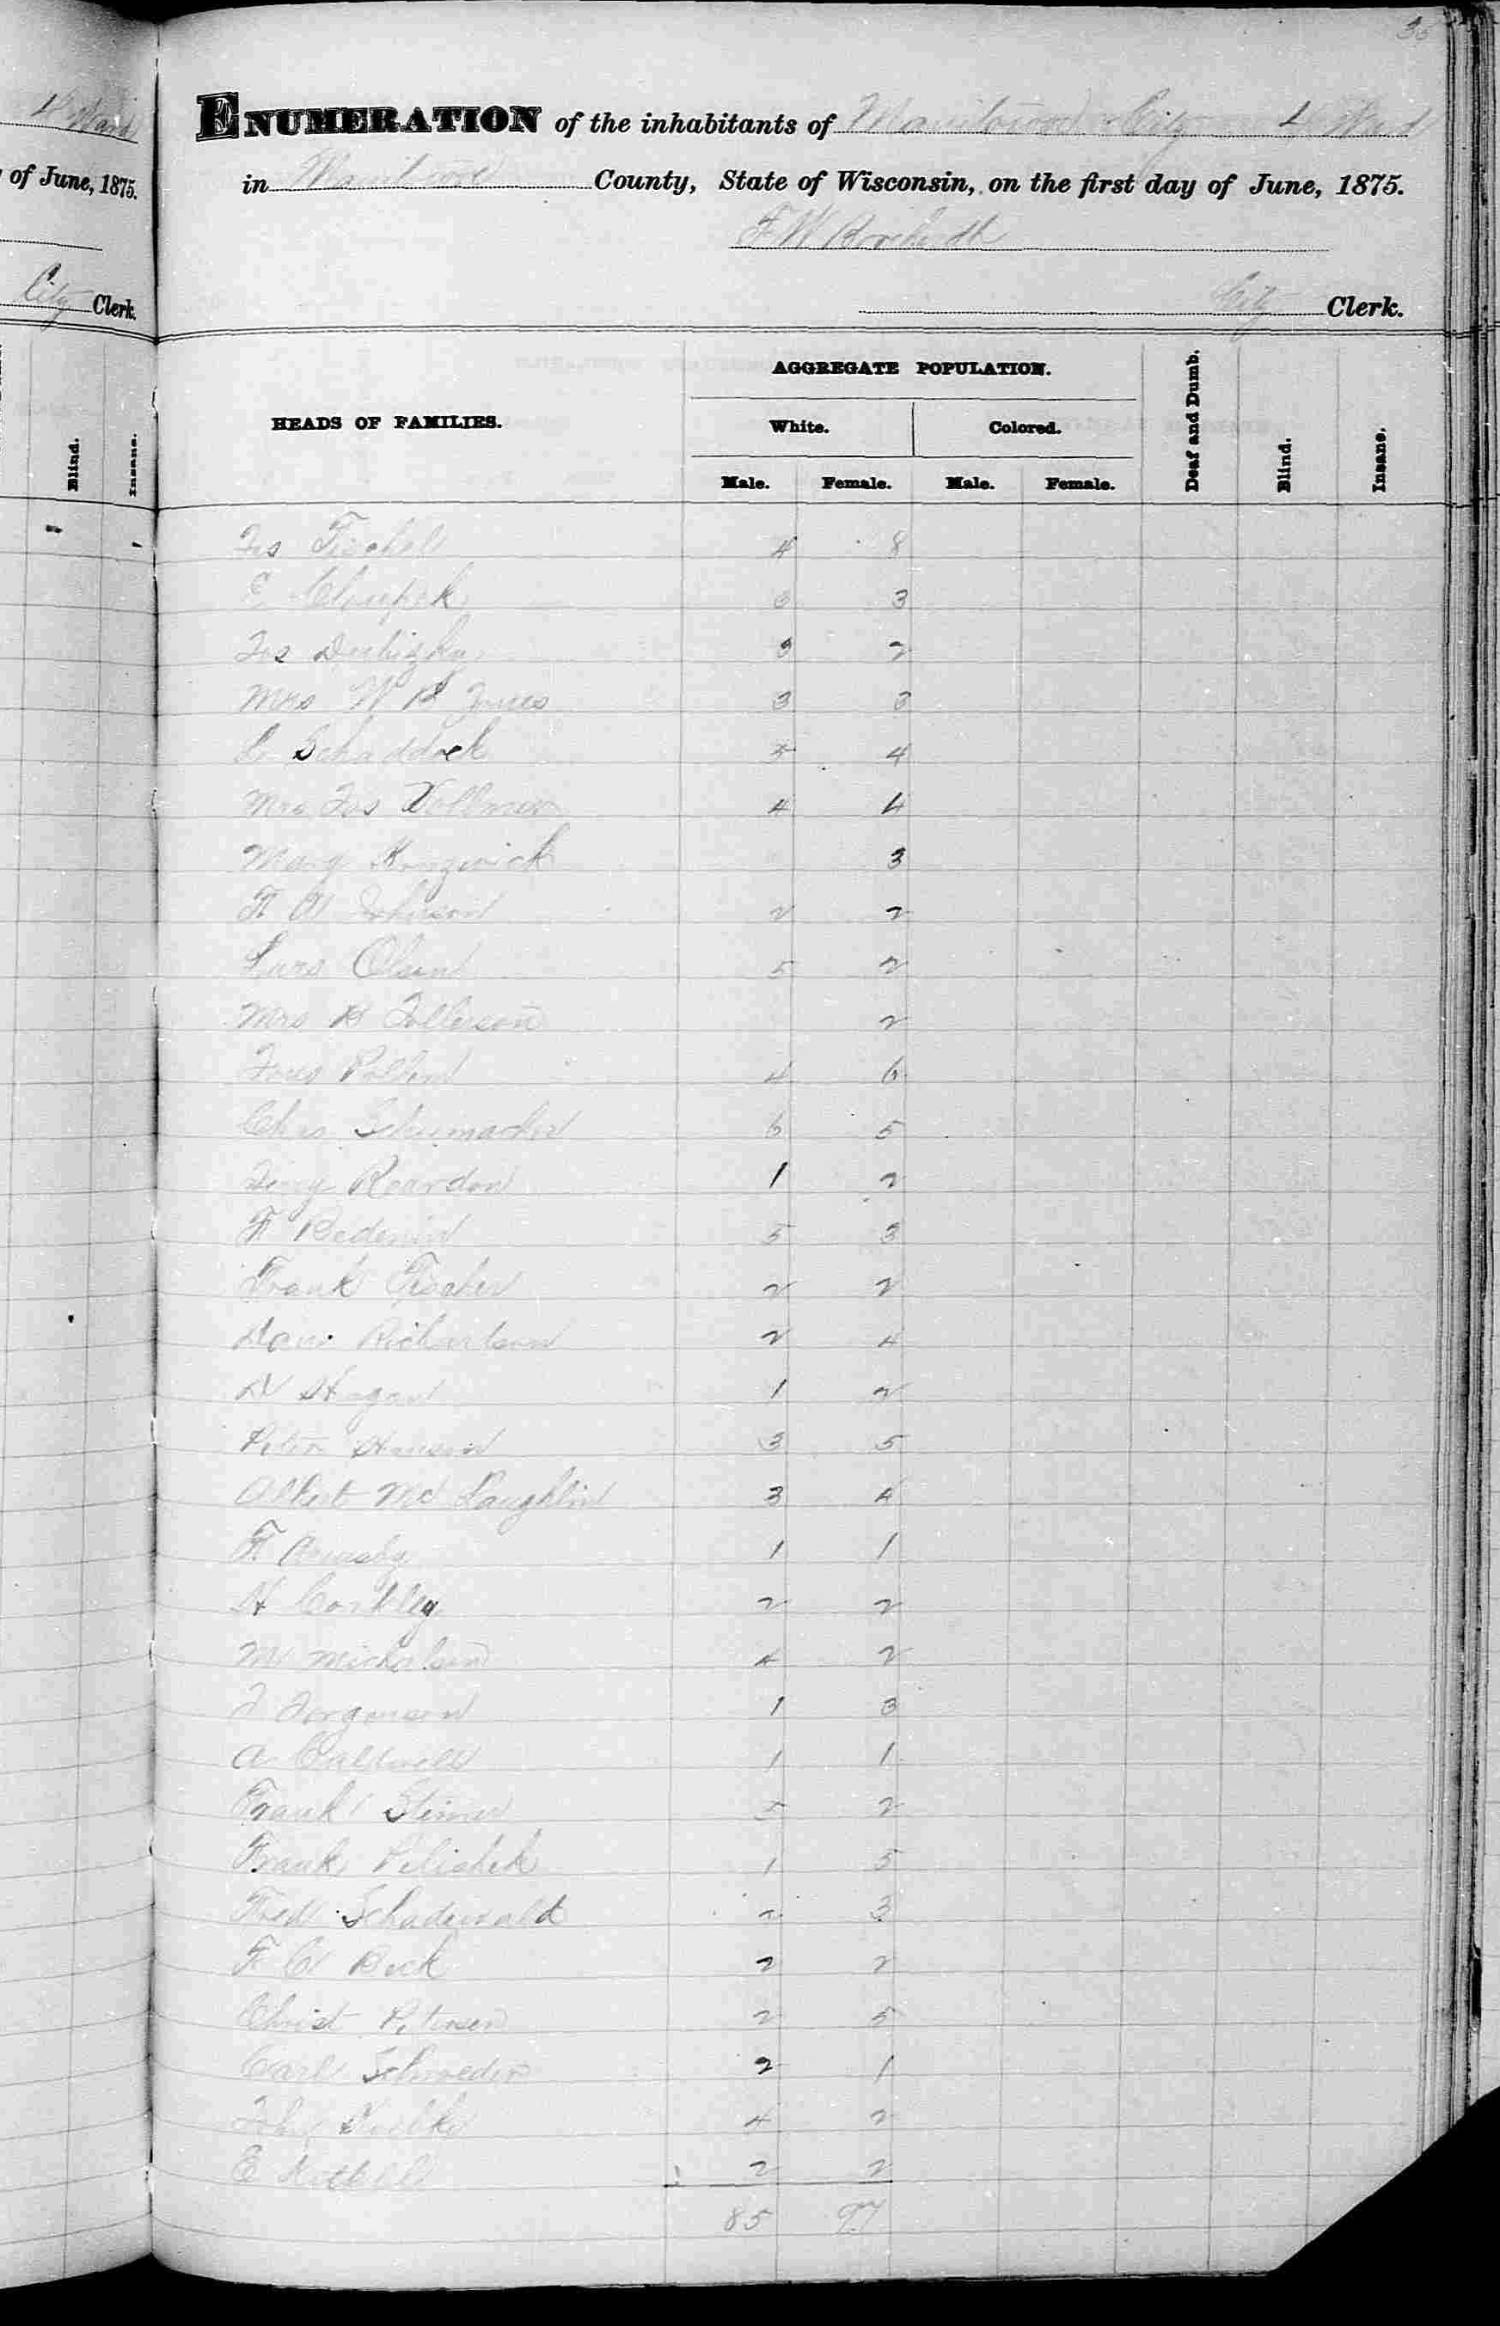 4 Ward
of June, 1875.
City Clerk.
Blind.
Insane.
ENUMERATION of the inhabitants of Manitowoc City 4 Ward
in Manitowoc County, State of Wisconsin, on the first day of June, 1875.
F W Borcherdt
City Clerk.
HEADS OF FAMILIES.
AGGREGATE POPULATION.
White.
Colored.
Male.
Female.
Male.
Female.
Deaf and Dumb.
Blind.
Insane.
Jos 4 8
3 3
Jos 3 2
Mrs W B Jones 3 3
Schaddock 5 4
Mrs Jos Vollmer 4 4
Mary 3
F W Johnson 2 2
Lars Olsen 5 2
Mrs B Tollefson 2
4 6
Chas Schumacher 6 5
Reardon 1 2
F 5 3
Frank Fischer 2 2
Richardson 2 4
Hagan 1 2
Peter Hansen 3 5
Albert Mc Laughlin 3 4
F Ormsby 1 1
H Conkley 2 2
M 4 2
J Jorgensen 1 3
A Caldwell 1 1
Frank Steiner 5 2
Frank Pelishek 1 5
Fred Schadewald 2 3
F C Beck 2 2
Christ Petersen 2 5
Carl Schroeder 2 1
John 4 2
E 2 2
85 97